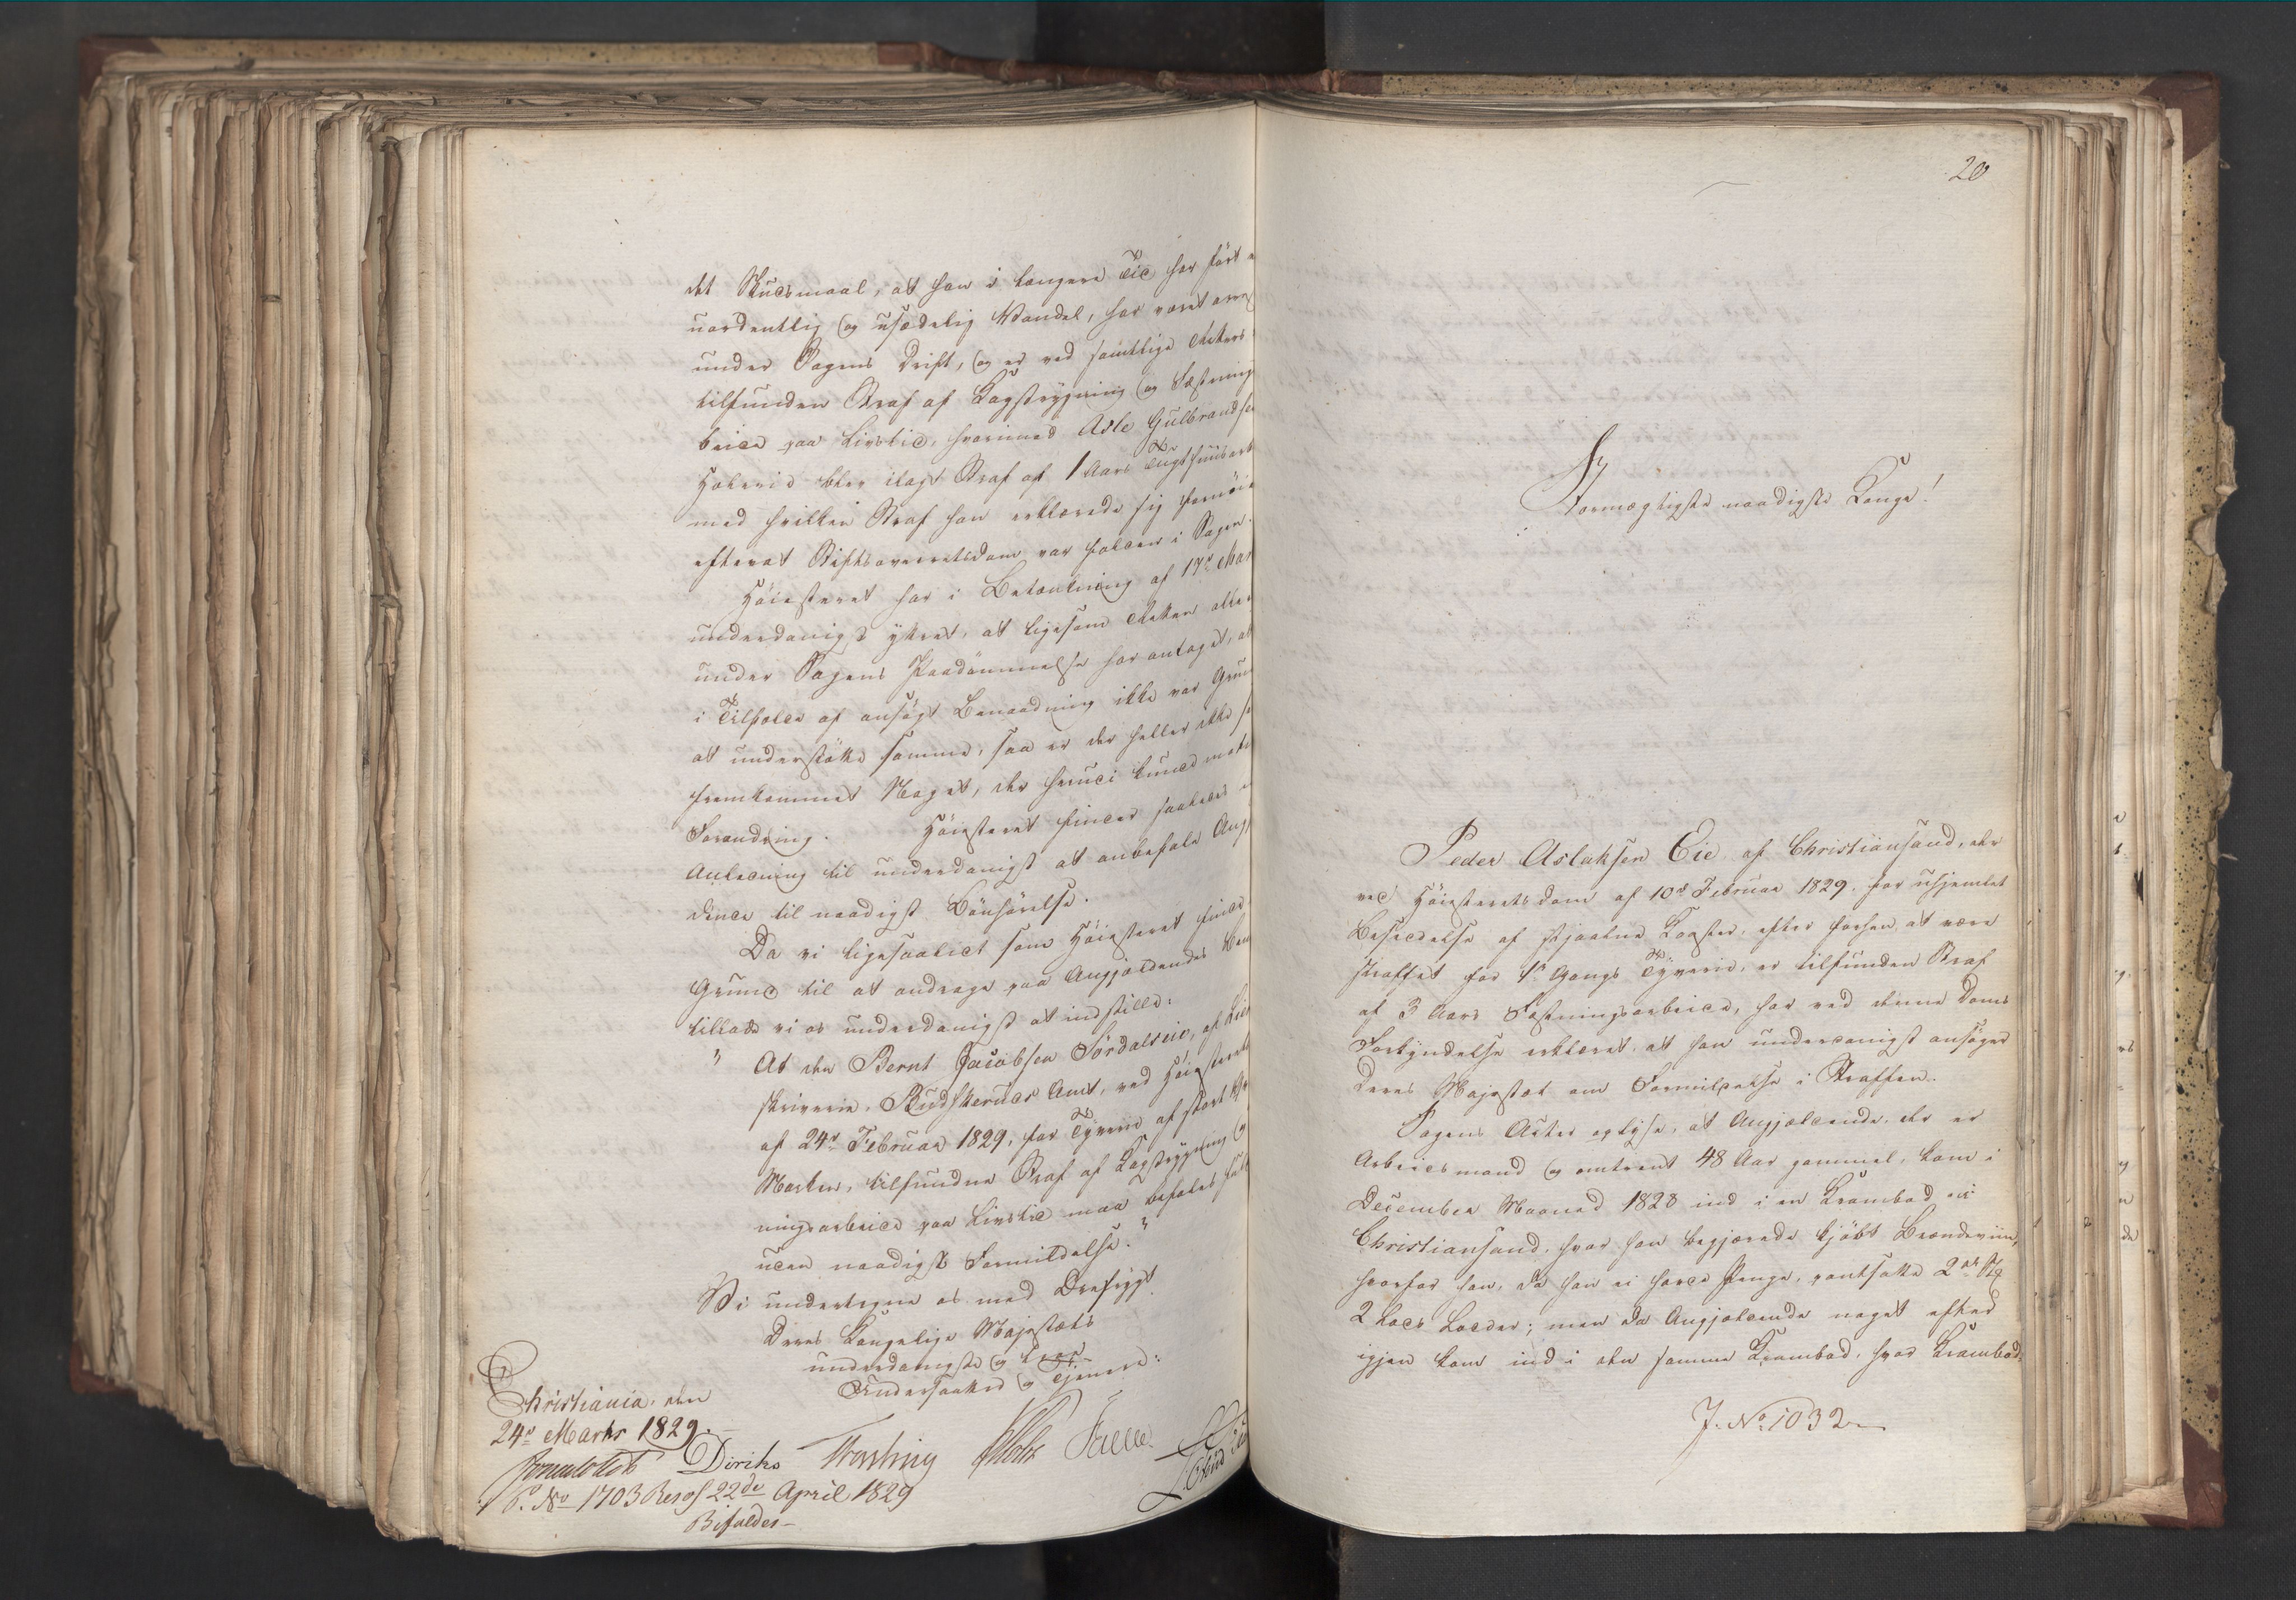 det Skudsmaal, at han i længere Tid har ført
uordentlig og usædelig Vandel, har været
under Sagens Drift, og er ved samtlige Retter
tilfunden Straf af Kagstrygning og Fæstnings
beide paa Livstid, hvorimod Asle Gulbrandsen
blev ilagt Straf af 1 Aars Tugthuusarb
med hvilken Straf han erklærede sig fornøie
efterat Stiftsoverretsdom var falden i Sagen.
Høiesteret har i Betænkning af 17de Mar
underdanigst yttret, at ligesom Retten
under Sagens Paadømmelse har antaget, at
i Tilfælde af ansøgt Benaadning ikke var Grun
at understøtte samme, saa er der heller ikke
fremkommet Noget, der herudi kunde
Forandring. Høiesteret finder saaledes
Anledning til underdanigst at anbefale Angj
dende til naadigst Bønhørelse.
Da vi ligesaalidt som Høiesteret finde
Grund til at andrage paa Angjældendes Ben
tillade vi os underdanigst at indstille:
" At den Bernt Jacobsen Sørdalseie, af
skriverie, Budskeruds Amt, ved Høiesterets
af 24de Februar 1829, for Tyverie af stort
Marken, tilfundne Straf af Kagstrygning og
ningsarbeide paa Livstid maa befales
uden naadigst Formildelse."
Vi undertegne os med Drefrygt
Deres Kongelige Majestæts
underdanigste og
Undersaatter og Tjenere:
Christiania, den
24de Marts 1829.
Diriks
P. No 1703 Resol 22de April 1829
Bifaldes
20
Stormægtigste naadigste Konge!
Peder Aslaksen Eie af Christiansand, der
ved Høiesteretsdom af 10de Februar 1829, for uhjemlet
Besiddelse af stjaalne Koster, efter forhen at være
straffet for 1ste Gangs Tyverie, er tilfunden Straf
af 3 Aars Fæstningsarbeide, har ved denne Doms
Forkyndelse erklæret, at han underdanigst ansøger
Deres Majestæt om Formildelse i Straffen.
Sagens Acter oplyse, at Angjældende, der er
Arbeidsmand og omtrent 48 Aar gammel, kom i
December Maaned 1828 ind i en Krambod i
Christiansand, hvor han begjærede kjøbt Brændeviin,
hvorfor han, da han ei havde Penge, pantsatte 2de
2 Lods Lodder; men da Angjældende noget efter
igjen kom ind i den samme Krambod, hvor Krambod-
J. No 1032